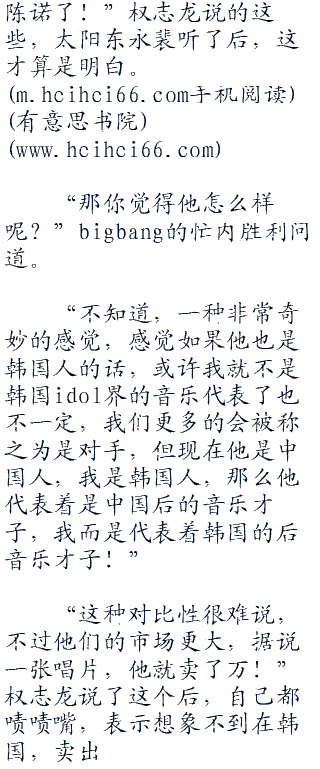 陈诺了！”权志龙说的这
些，太阳东永裴听了后，这
才算是明白。
(m.hcihci66.com手机阅读)
(有意思书院)
(www.hcihci66.com)
“那你觉得他怎么样
呢？”bigbang的忙内胜利问
道。
“不知道，一种非常奇
妙的感觉，感觉如果他也是
韩国人的话，或许我就不是
韩国idol界的音乐代表了也
不一定，我们更多的会被称
之为是对手，但现在他是中
国人，我是韩国人，那么他
代表着是中国后的音乐才
子，我而是代表着韩国的后
音乐才子！”
“这种对比性很难说，
不过他们的市场更大，据说
一张唱片，他就卖了万！”
权志龙说了这个后，自己都
啧啧嘴，表示想象不到在韩
国，卖出